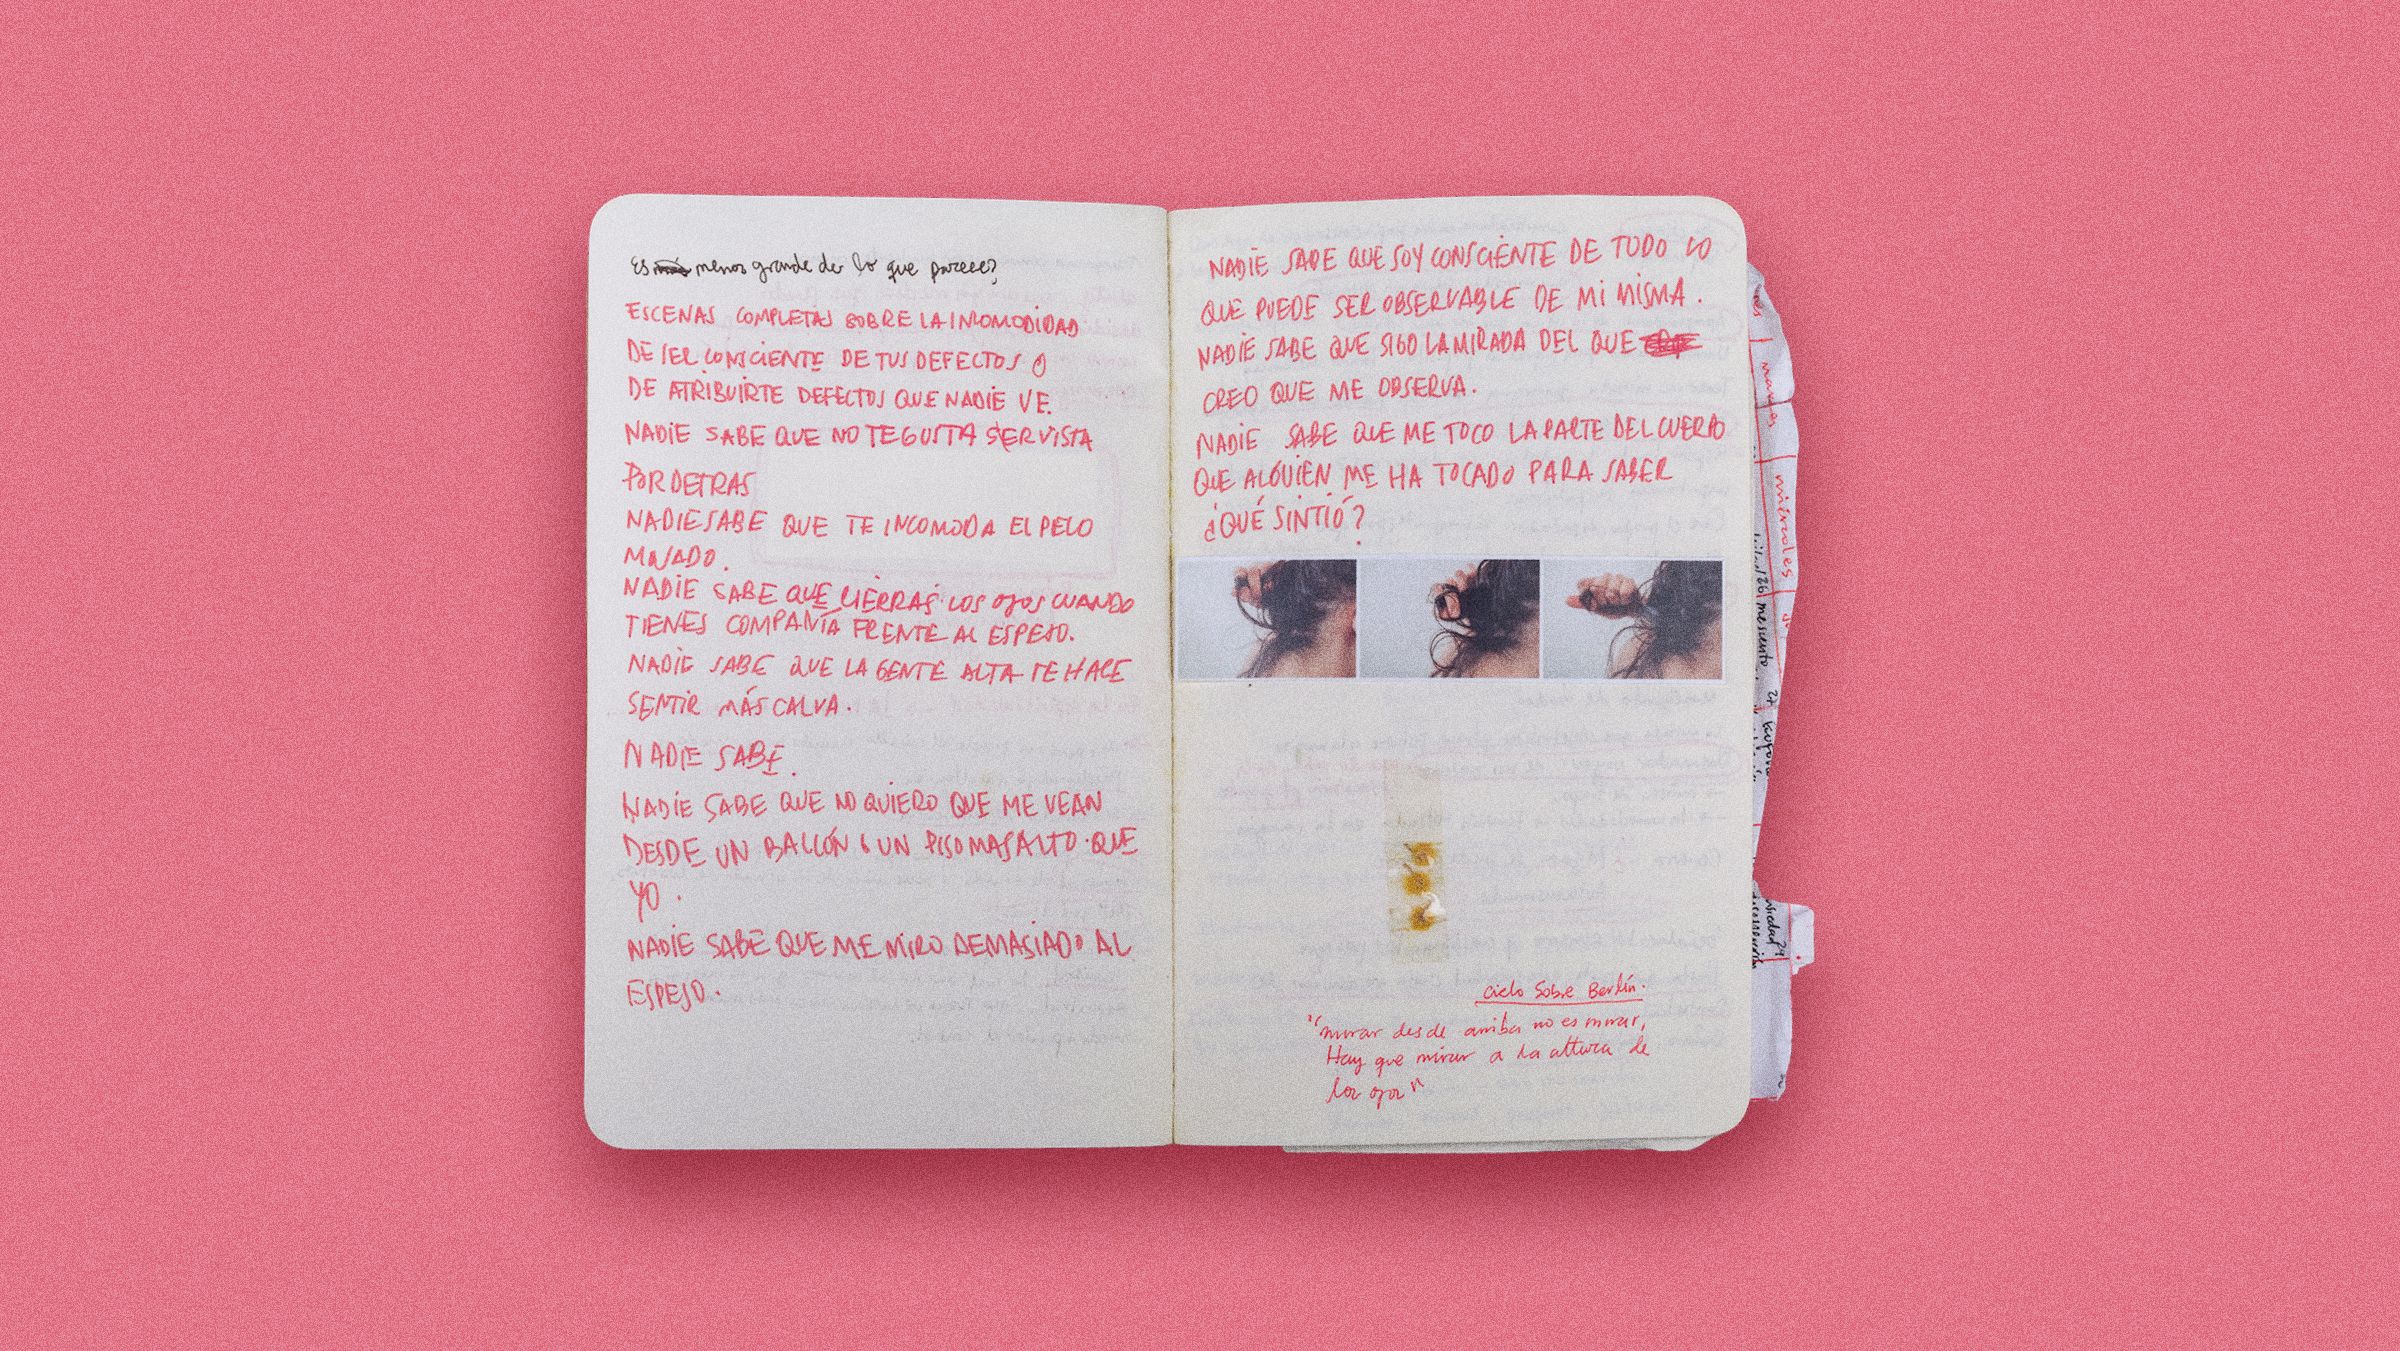 Es menos grande de lo que parece?
ESCENAS COMPLETAS SOBRE LA INCOMODIDAD
DE SER CONSCIENTE DE TUS DEFECTOS O
DE ATRIBUIRTE DEFECTOS QUE NADIE VE.
NADIE SABE QUE NO TE GUSTA SER VISTA
POR DETRAS
NADIE SABE QUE TE INCOMODA EL PELO
MOJADO.
NADIE SABE QUE CIERRAS LOS OJOS CUANDO
TIENES COMPAÑÍA FRENTE AL ESPEJO.
NADIE SABE QUE LA GENTE ALTA TE HACE
SENTIR MÁS CALVA.
NADIE SABE.
NADIE SABE QUE NO QUIERO QUE ME VEAN
DESDE UN BALCÓN Ó UN PISO MAS ALTO QUE
YO.
NADIE SABE QUE ME MIRO DEMASIADO AL
ESPEJO.
NADIE SABE QUE SOY CONSCIENTE DE TODO LO
QUE PUEDE SER OBSERVABLE DE MI MISMA.
NADIE SABE QUE SIGO LA MIRADA DEL QUE
CREO QUE ME OBSERVA.
NADIE SABE QUE ME TOCO LA PARTE DEL CUERPO
QUE ALGUIEN ME HA TOCADO PARA SABER
¿QUÉ SINTIÓ?
ciclo Sobre Berlín.
"mirar desde arriba no es mirar,
Hay que mirar a la altura de
los ojos"
martes
miércoles
me siento.